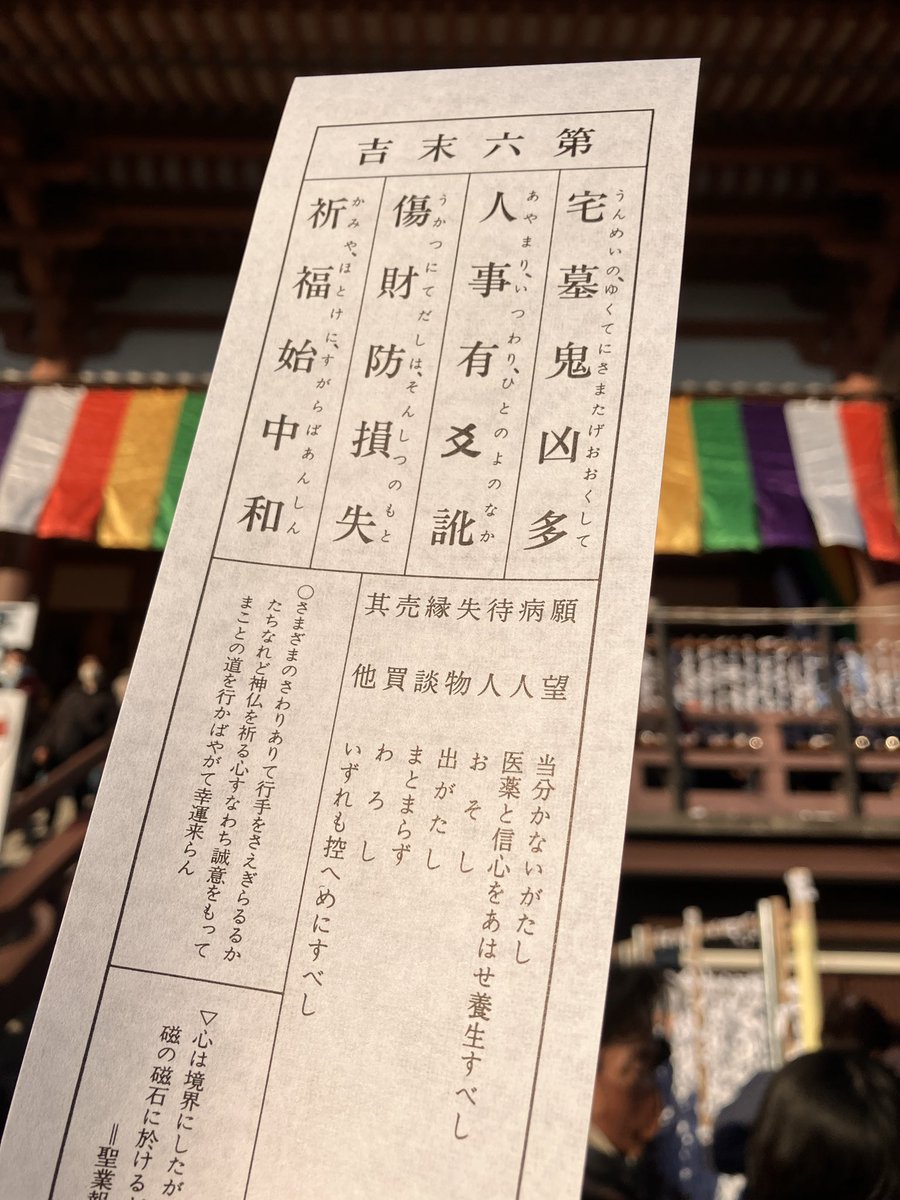 第六末吉
宅墓鬼凶多
うんめいの、ゆくてにさまたげおおくして
人事有爻訛
あやまり、いつわり、ひとのよのなか
傷財防損失
うかつにてだしは、そんしつのもと
祈福始中和
かみや、ほとけに、すがらばあんしん
願望 当分かないがたし
病人 医薬と信心をあはせ養生すべし
待人 おそし
失物 出がたし
縁談 まとまらず
売買 わろし
其他 いずれも控へめにすべし
○さまざまのさわりありて行手をさえぎらるるか
たちなれど神仏を祈る心すなわち誠意をもって
まことの道を行かばやがて幸運来らん
▽心は境界にしたが
磁の磁石に於ける
＝聖業報